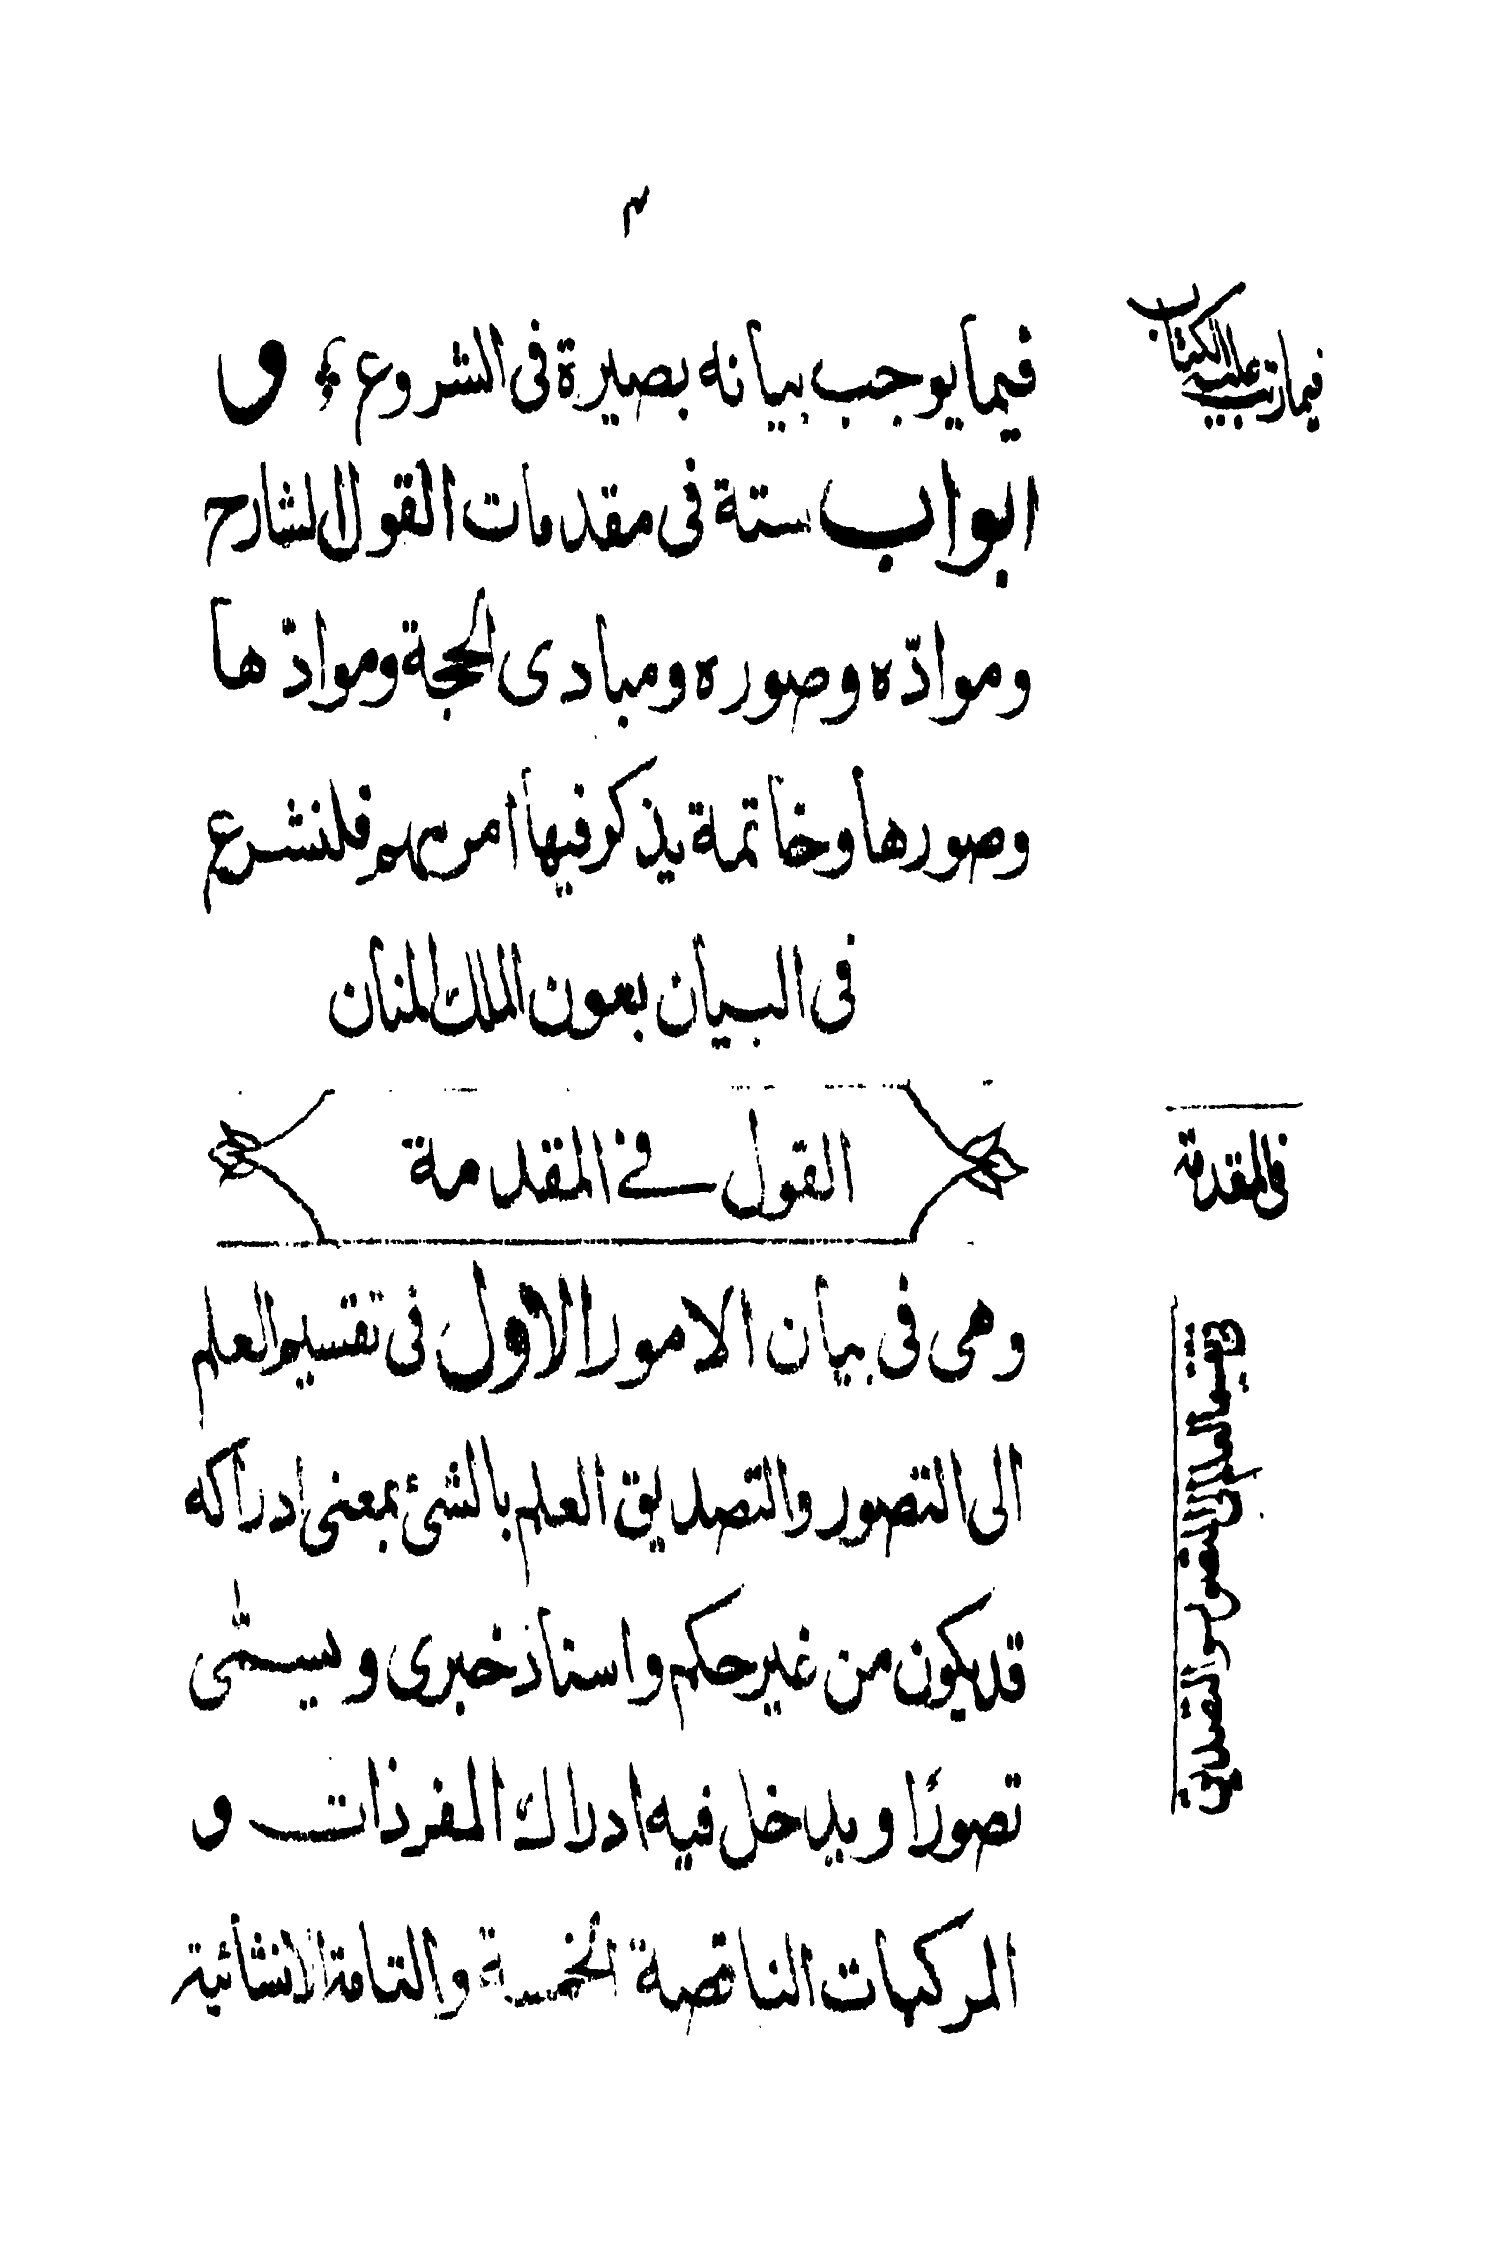 ٣
فيما رتب عليه الكتاب
فيما يوجب بيانه بصيرة فى الشروع و
ابواب ستة فى مقدمات القول الشارح
وموادّه وصوره ومبادى الحجة وموادّها
وصورها وخاتمة يذكر فيها امر مهم فلنشرع
فى البيان بعون الملك المنان
القول فى المقدمة
فى المقدمة
وهى فى بيان الامور الاول فى تقسيم العلم
الى التصور والتصديق العلم بالشئ بمعنى ادراكه
قد يكون من غير حكم واسناد خبرى ويسمّى
تصورًا ويدخل فيه ادراك المفردات و
المركبات الناقصة الخمسة والتامة الانشائية
فى تقسيم العلم الى التصور والتصديق